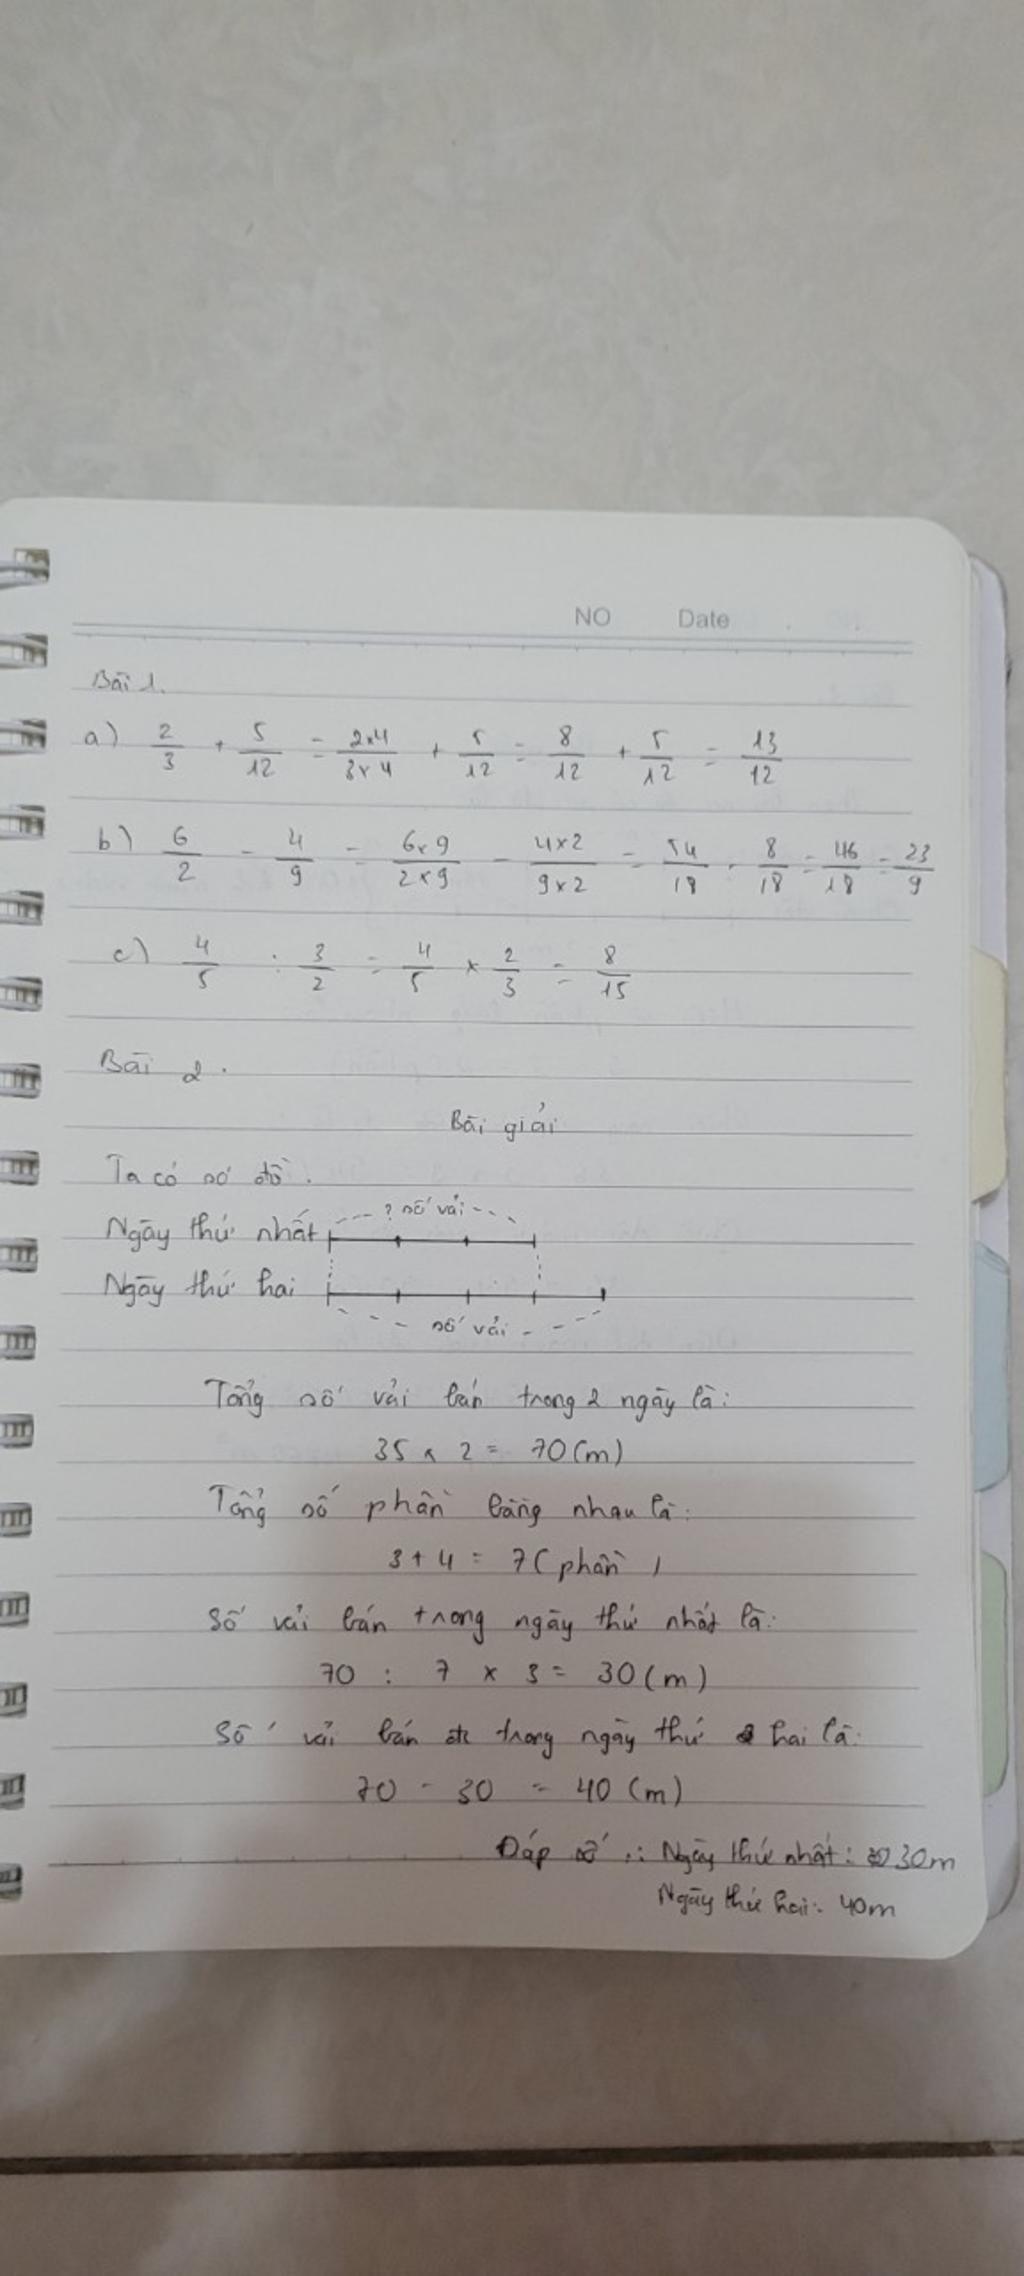 NO Date
Bài 1.
a) 2/3 + 5/12 = 2x4/3x4 + 5/12 = 8/12 + 5/12 = 13/12
b) 6/2 - 4/9 = 6x9/2x9 - 4x2/9x2 = 54/18 - 8/18 = 46/18 = 23/9
c) 4/5 : 3/2 = 4/5 x 2/3 = 8/15
Bài 2.
Bài giải
Ta có sơ đồ.
? số vải
Ngày thứ nhất
Ngày thứ hai
số vải
Tổng số vải bán trong 2 ngày là:
35 x 2 = 70(m)
Tổng số phần bằng nhau là:
3 + 4 = 7 (phần)
Số vải bán trong ngày thứ nhất là:
70 : 7 x 3 = 30 (m)
Số vải bán trong ngày thứ hai là:
70 - 30 = 40 (m)
Đáp số : Ngày thứ nhất: 30m
Ngày thứ hai: 40m